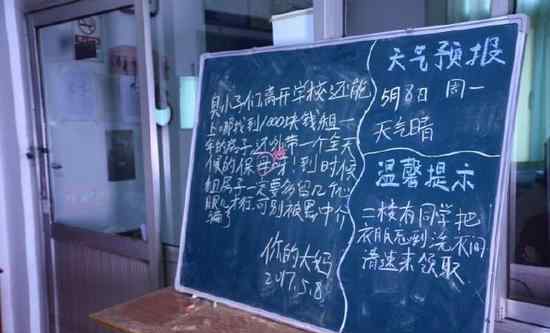 臭小子们,离开学校还能
上哪找到1000块钱租一
年的房子,还外带一个全天
候的保母呀!到时候
租房子一定要多留几个心
眼儿才行,可别被黑中介
骗了
你的大妈
2017.5.8
天气预报
5月8日 周一
天气晴
温馨提示
一楼有同学把
衣服忘到洗衣间
请速来领取